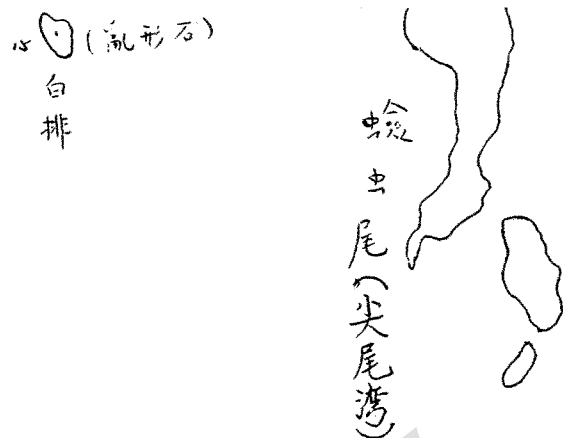 15 (亂形石)
白排
蠄虫尾(尖尾湾)